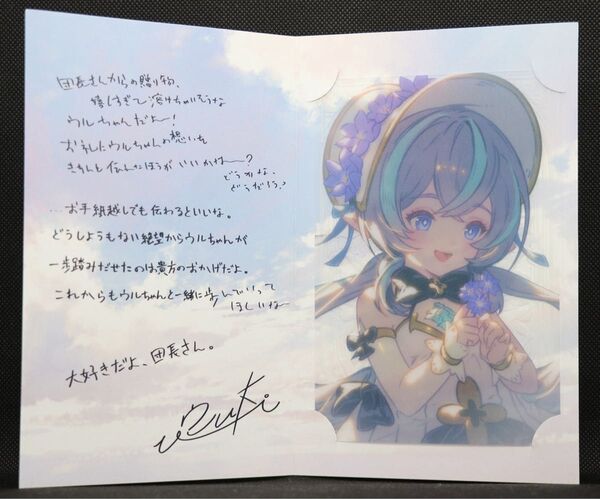 団長さんからの贈り物、
嬉しすぎて溶けちゃいそうな
ウルちゃんだよー!
お礼にウルちゃんの想いを
きちんと伝えたほうがいいかなー?
どうかな、
どうだろう?
…お手紙越しでも伝わるといいな。
どうしようもない絶望からウルちゃんが
一歩踏みだせたのは貴方のおかげだよ。
これからもウルちゃんと一緒に歩んでいって
ほしいなー
大好きだよ、団長さん。